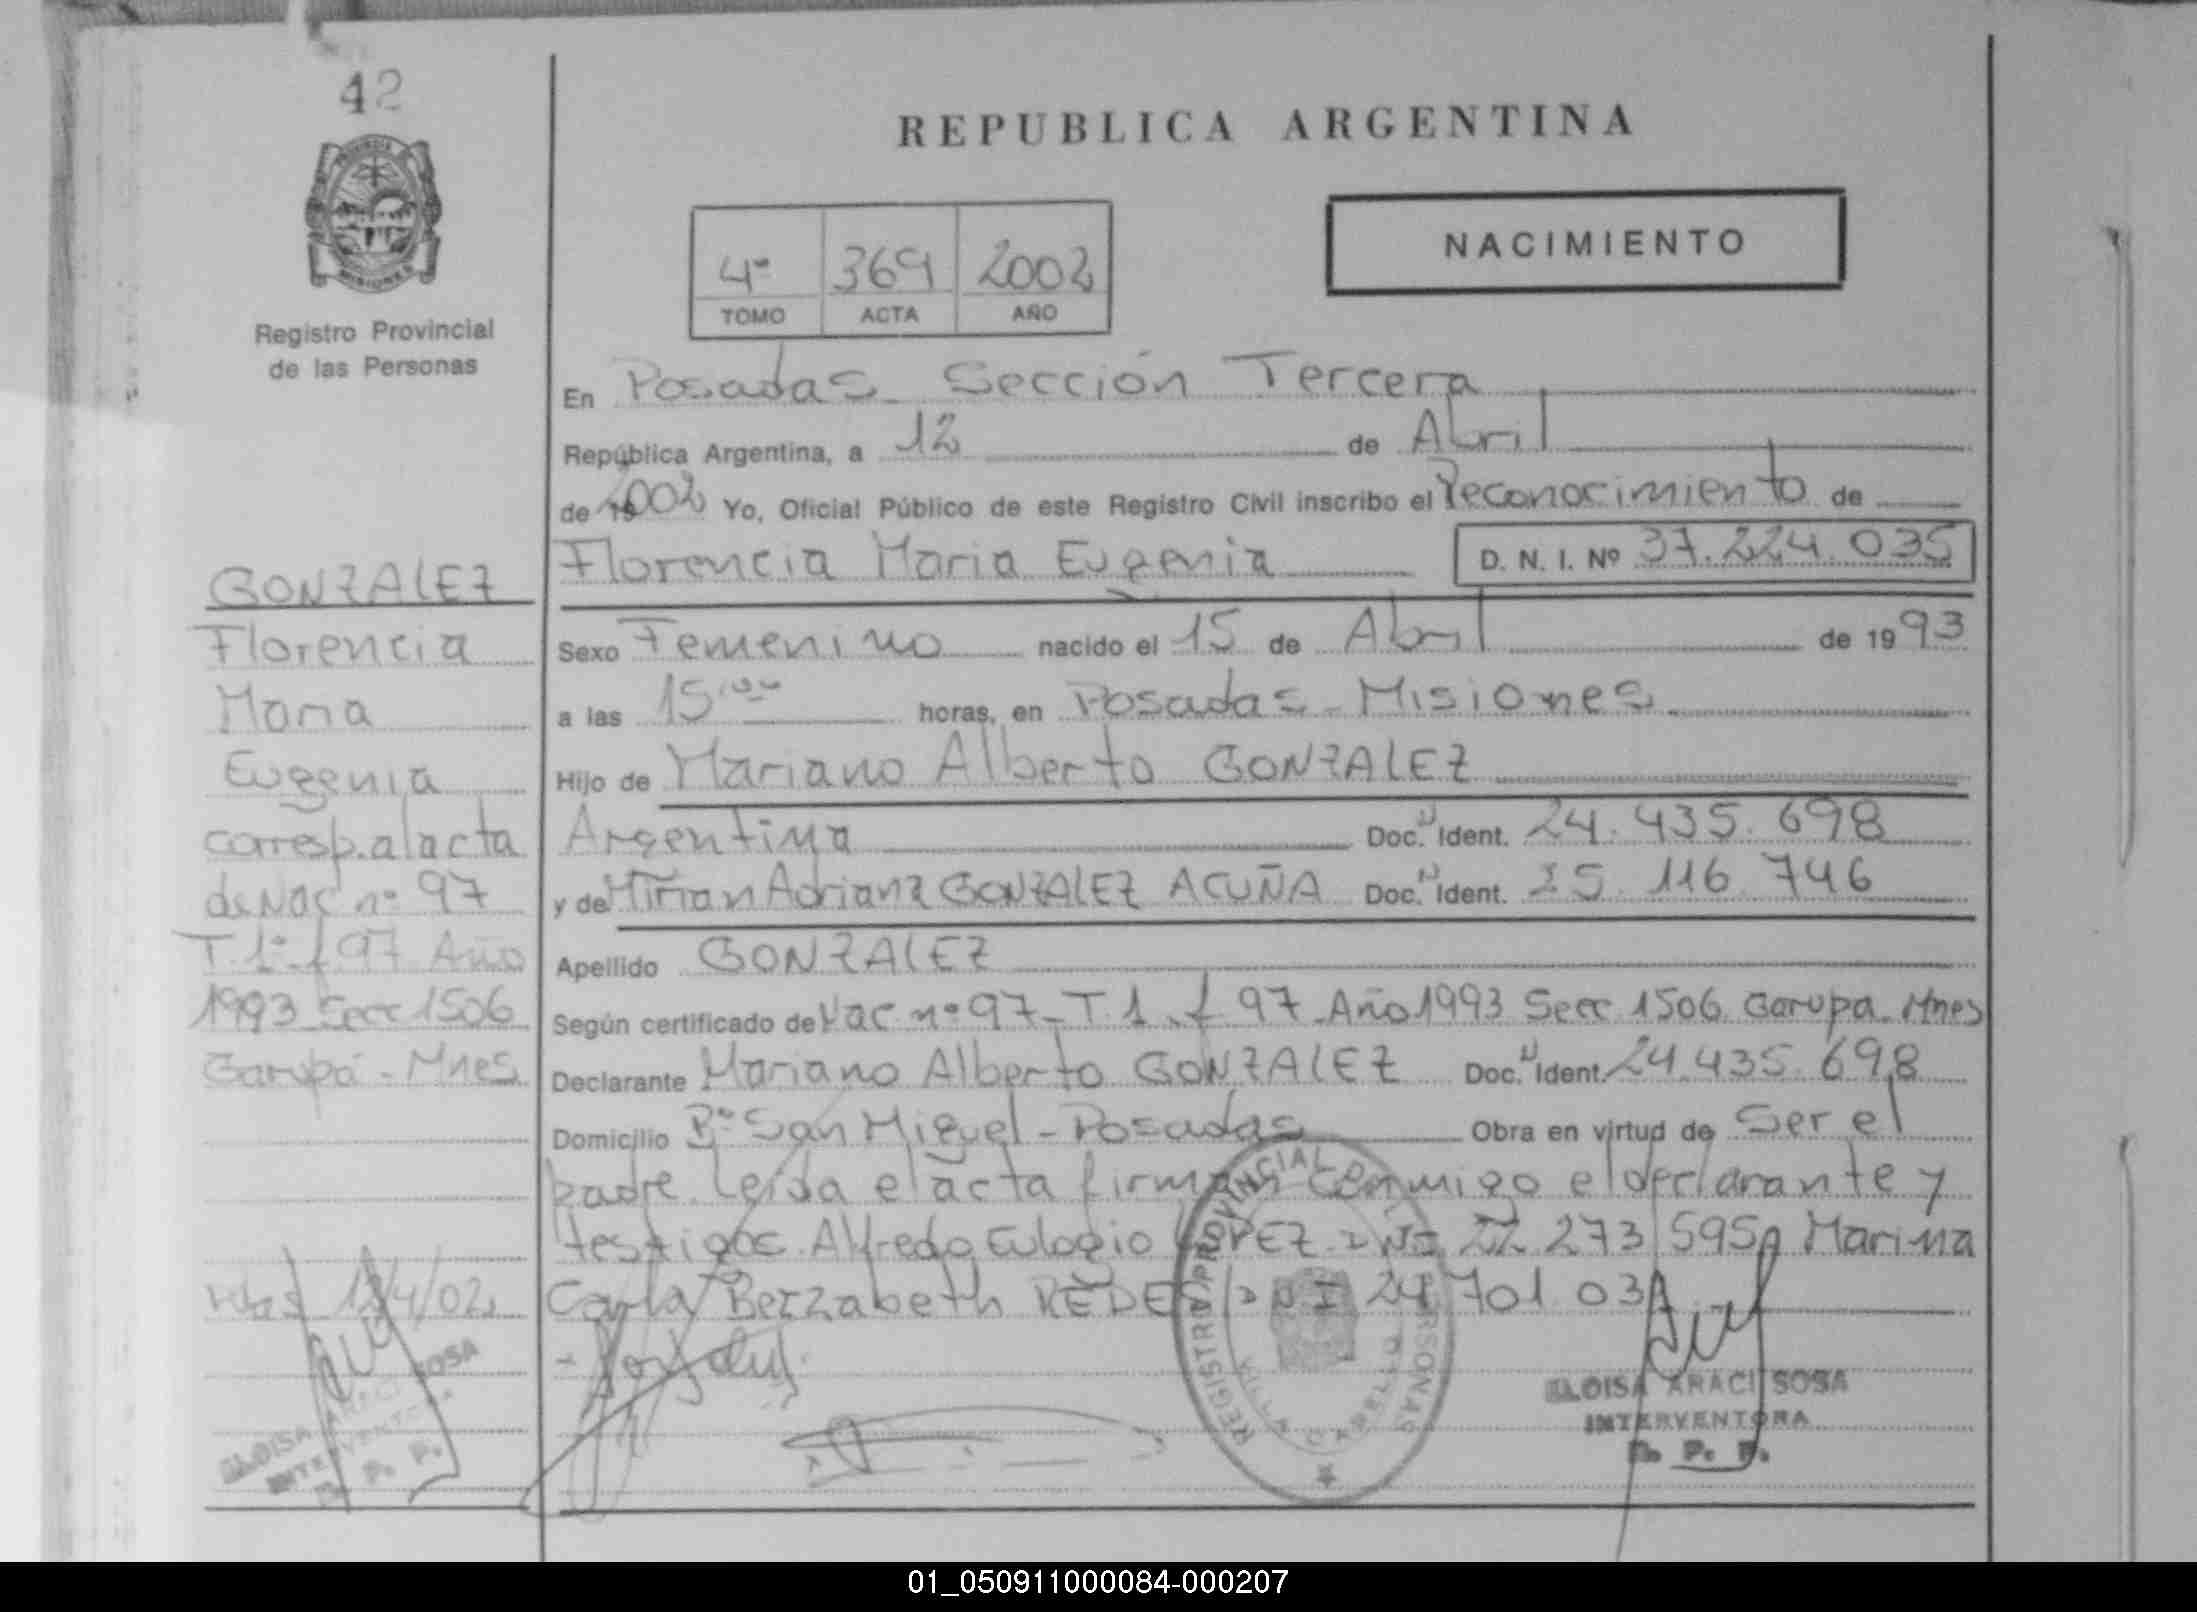 42
REPUBLICA ARGENTINA
NACIMIENTO
4º 369 2002
TOMO ACTA AÑO
Registro Provincial
de las Personas
En Posadas Sección Tercera
República Argentina, a 12 de Abril
de 2002 Yo, Oficial Público de este Registro Civil inscribo el Reconocimiento de
Florencia Maria Eugenia D. N. I. Nº 37.224.035
Sexo Femenino nacido el 15 de Abril de 1993
a las 15 horas, en Posadas - Misiones
Hijo de Mariano Alberto GONZALEZ
Argentina Doc. Ident. 24.435.698
y de Mirian Adriana GONZALEZ ACUÑA Doc. Ident. 25.116.746
Apellido GONZALEZ
Según certificado de Nac nº 97 - T.1 f 97 Año 1993 Secc 1506 Garupa - Mnes
Declarante Mariano Alberto GONZALEZ Doc. Ident. 24.435.698
Domicilio Bº San Miguel - Posadas Obra en virtud de Ser el
padre Leida el acta firman conmigo el declarante y
testigos Alfredo Eulogio LOPEZ DNI 22.273.595 Marina
Carla Betzabeth REDES DNI 24.701.03
GONZALEZ
Florencia
Maria
Eugenia
corresp. al acta
de Nac nº 97
T. 1º f 97 Año
1993 Secc 1506
Garupá - Mnes
Pdas 12/4/02
ELOISA ARACI SOSA
INTERVENTORA
R. P. P.
REGISTRO PROVINCIAL DE LAS PERSONAS
ELOISA ARACI SOSA
INTERVENTORA
R. P. P.
01_050911000084-000207